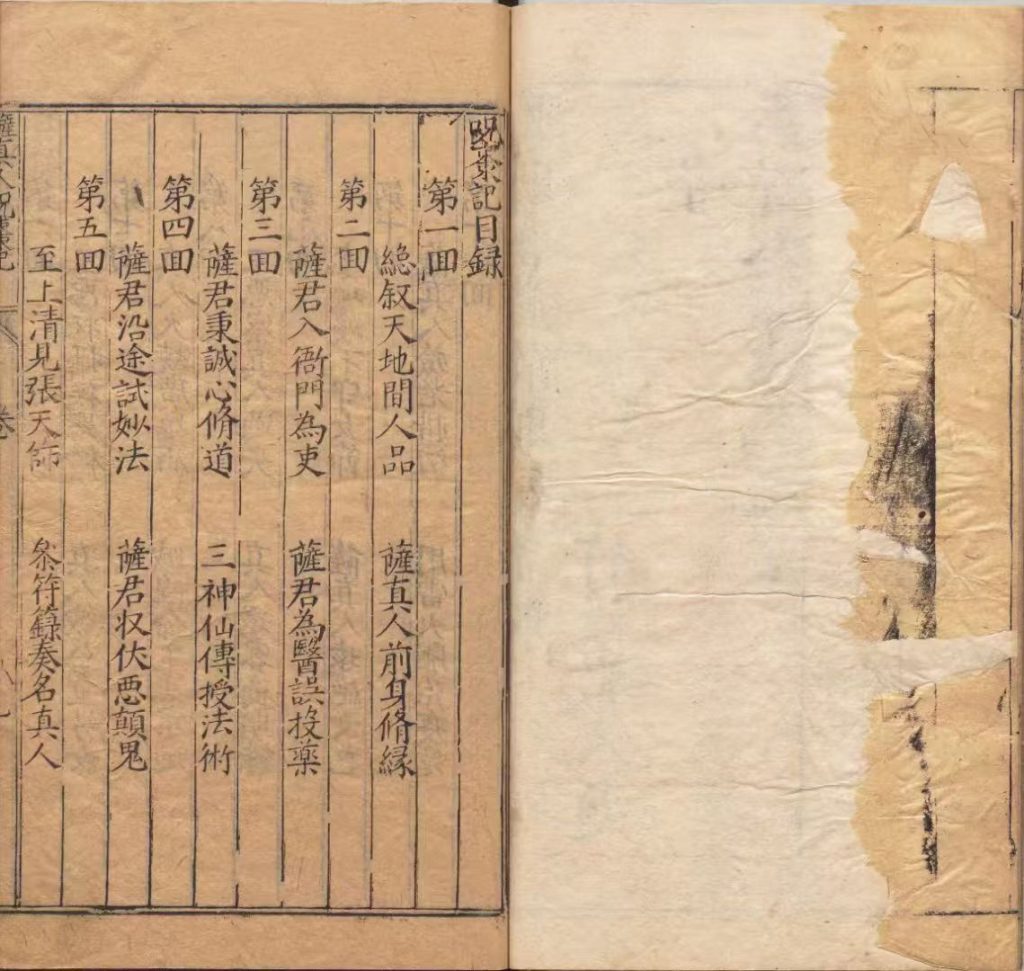 呪棗記目録
第一囬
緫叙天地間人品　薩真人前身脩縁
第二囬
薩君入衙門為吏　薩君為醫誤投藥
第三囬
薩君秉誠心脩道　三神仙傳授法術
第四囬
薩君沿途試妙法　薩君收伏惡顛鬼
第五囬
至上清見張天師　叅符籙奏名真人
薩真人呪棗記　卷